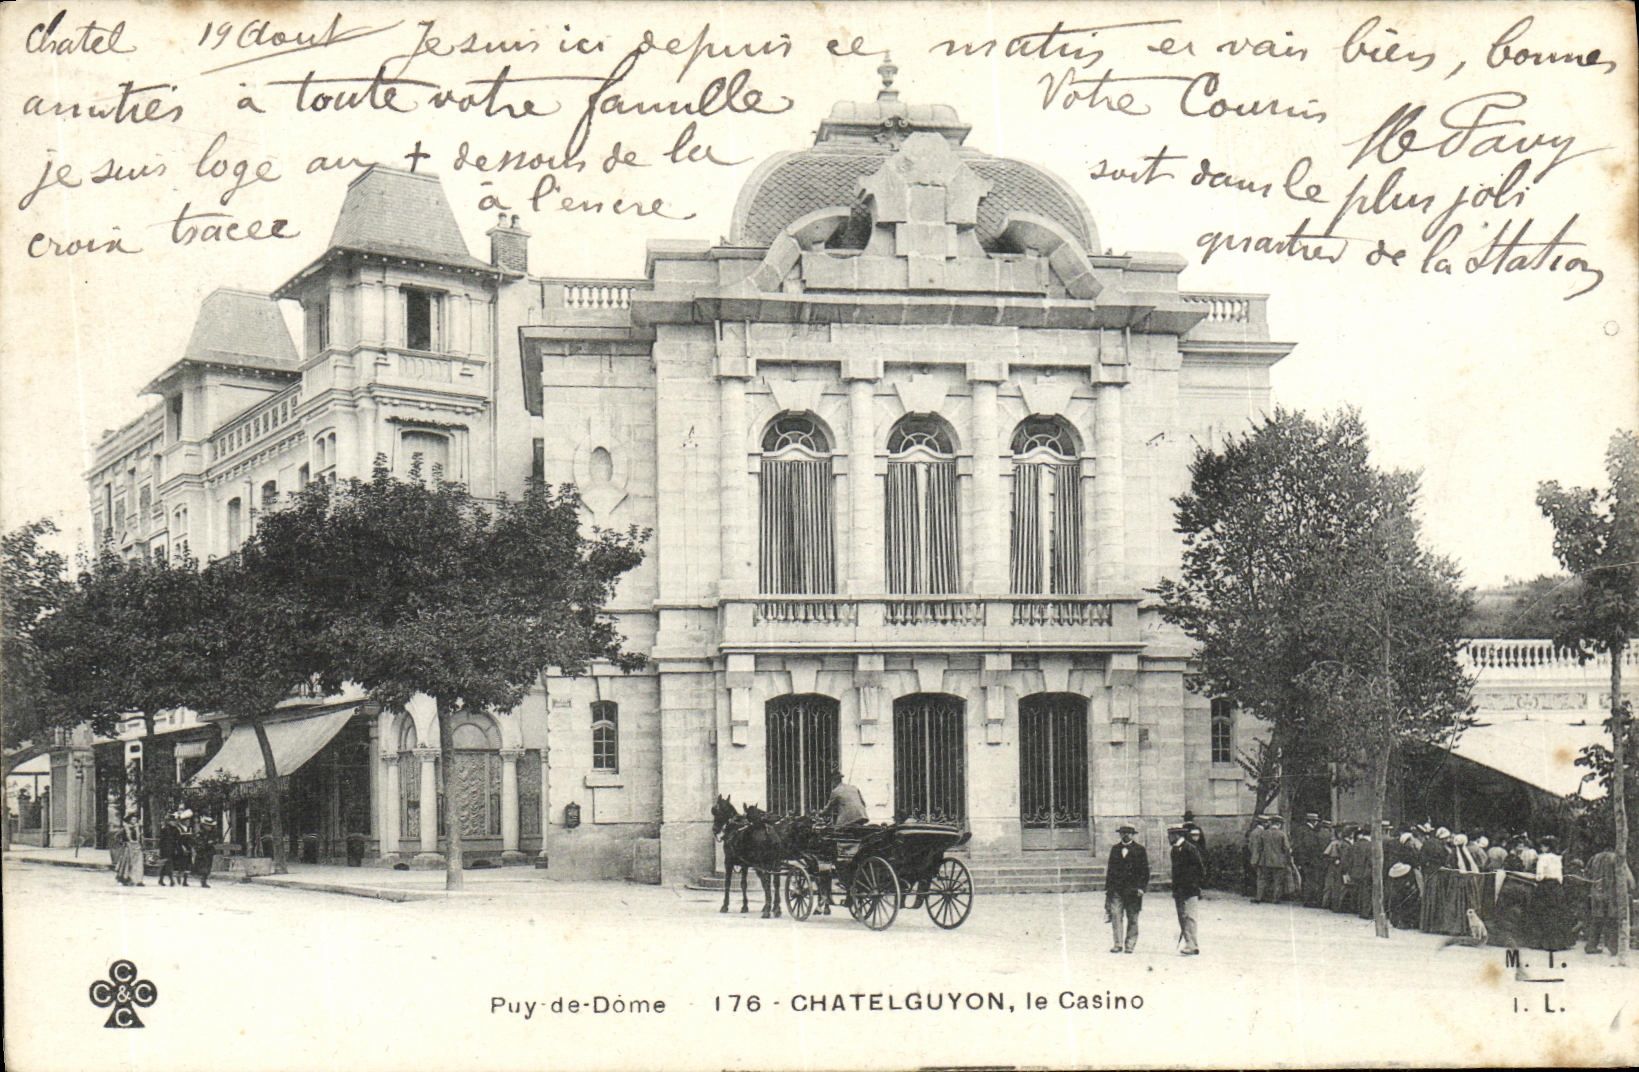 Chatel 19 Aout Je suis ici depuis ce matin et vais bien, bonnes
amitiés à toute votre famille Votre Cousin
H Pavy
je suis logé au + dessous de la
croix tracée à l'encre
soit dans le plus joli
quartier de la Station
M. T.
I. L.
C C & C C
Puy-de-Dôme 176 - CHATELGUYON, le Casino